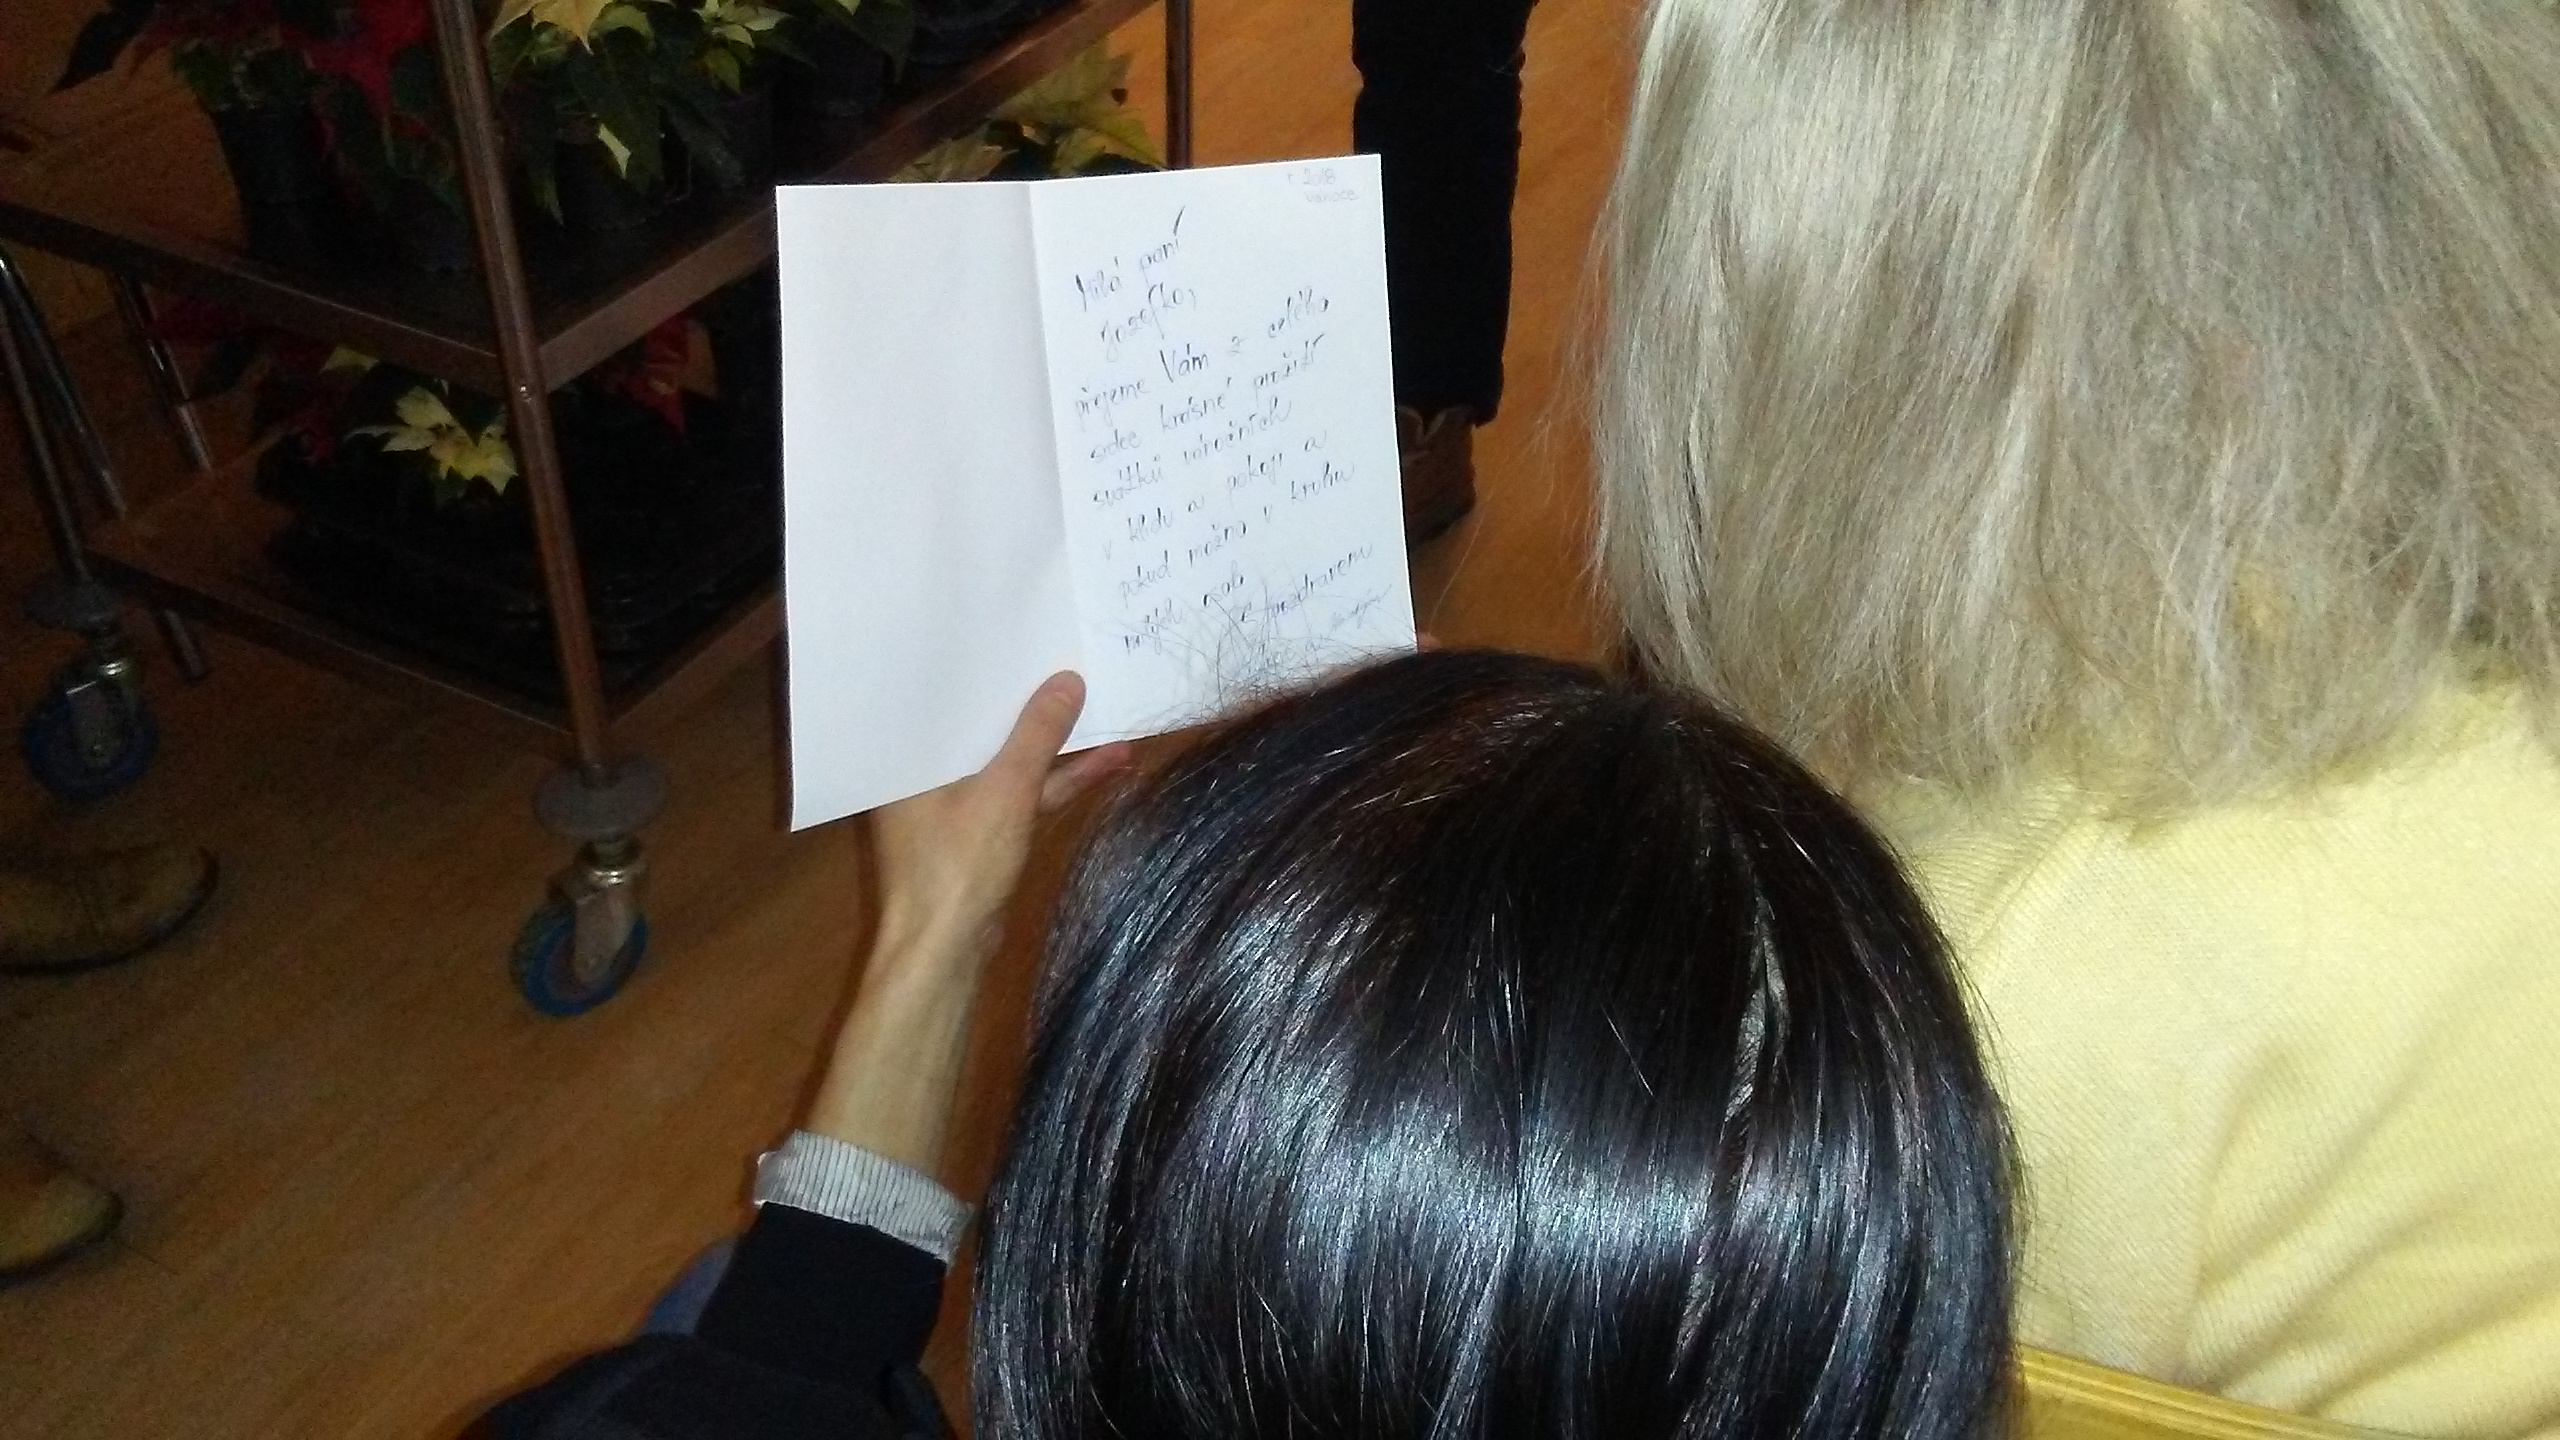 r 2018
vánoce
Milá paní
Jozefko,
přejeme Vám z celého
srdce krásné prožití
svátků vánočních
v klidu a pokoji a
pokud možno v kruhu
milých osob
Se pozdravem
a